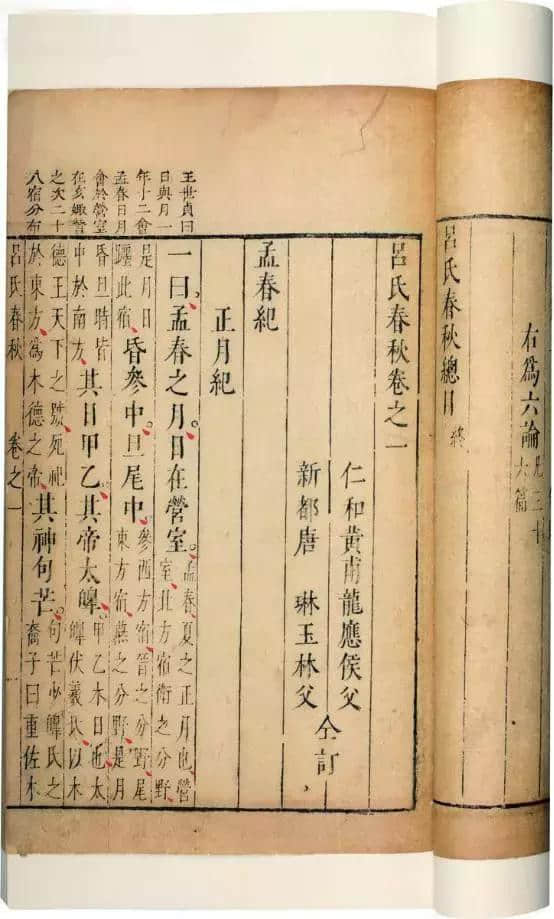 右為六論凡三十六篇
呂氏春秋總目 終
呂氏春秋卷之一
仁和黃甫龍應侯父
新都唐 琳玉林父
仝訂
孟春紀
正月紀
王世貞曰
日與月一
年十二會
孟春日月
會於營室
在亥娵訾
之次二十
八宿分布
一曰孟春之月日在營室。孟春夏之正月也營室北方宿衛之分野
是月日躔此宿昏參中旦尾中參西方宿晉之分野尾東方宿燕之分野是月
昏旦時皆中於南方其日甲乙其帝太皞甲乙木日也太皞伏羲氏以木
德王天下之號死祀於東方為木德之帝其神句芒。句芒少皞氏之裔子曰重佐木
呂氏春秋 卷之一